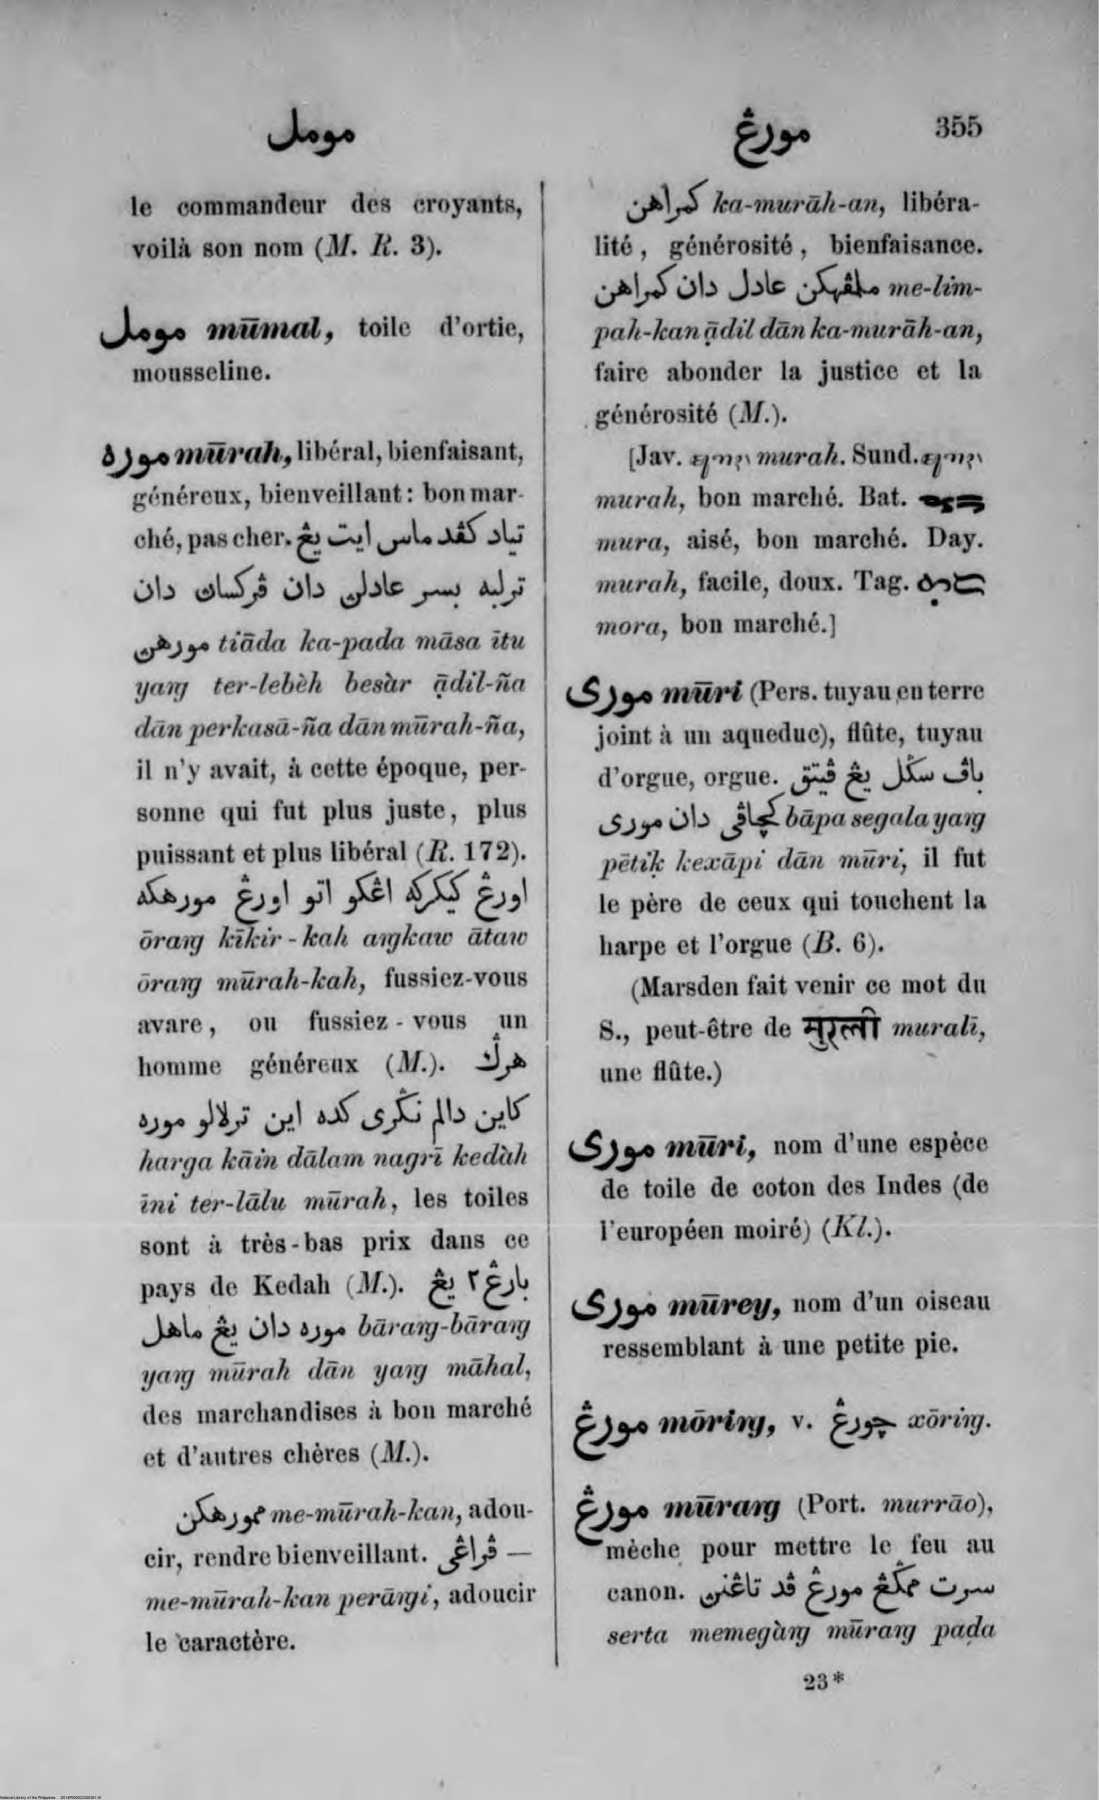 مومل
مورڠ 355
le commandeur des croyants,
voilà son nom (M. R. 3).
مومل mūmal, toile d'ortie,
mousseline.
موره mūrah, libéral, bienfaisant,
généreux, bienveillant: bon mar-
ché, pas cher. تياد كڤد ماس ايت يڠ
ترلبه بسر عادلڽ دان ڤركساڽ دان
مورهڽ tiāda ka-pada māsa ītu
yaŋg ter-lebèh besàr ạ̄dil-ña
dān perkasā-ña dān mūrah-ña,
il n'y avait, à cette époque, per-
sonne qui fut plus juste, plus
puissant et plus libéral (R. 172).
اورڠ كيكركه اڠكو اتو اورڠ مورهكه
ōraŋg kīkir-kah aŋgkaw ātaw
ōraŋg mūrah-kah, fussiez-vous
avare, ou fussiez-vous un
homme généreux (M.). هرݢ
كاين دالم نݢري كده اين ترلالو موره
harga kāin dālam nagrī kedàh
īni ter-lālu mūrah, les toiles
sont à très-bas prix dans ce
pays de Kedah (M.). بارڠ٢ يڠ
موره دان يڠ ماهل bāraŋg-bāraŋg
yaŋg mūrah dān yaŋg māhal,
des marchandises à bon marché
et d'autres chères (M.).
ممورهكن me-mūrah-kan, adou-
cir, rendre bienveillant. ڤراڠي —
me-mūrah-kan perāŋgi, adoucir
le caractère.
كمراهن ka-murāh-an, libéra-
lité, générosité, bienfaisance.
ملمڤهكن عادل دان كمراهن me-lim-
pah-kan ạ̄dil dān ka-murāh-an,
faire abonder la justice et la
générosité (M.).
[Jav. murah. Sund.
murah, bon marché. Bat.
mura, aisé, bon marché. Day.
murah, facile, doux. Tag.
mora, bon marché.]
موري mūri (Pers. tuyau en terre
joint à un aqueduc), flûte, tuyau
d'orgue, orgue. باڤ سݢل يڠ ڤيتق
كچاڤي دان موري bāpa segala yaŋg
pētiḳ kexāpi dān mūri, il fut
le père de ceux qui touchent la
harpe et l'orgue (B. 6).
(Marsden fait venir ce mot du
S., peut-être de मुरली muralī,
une flûte.)
موري mūri, nom d'une espèce
de toile de coton des Indes (de
l'européen moiré) (Kl.).
موري mūrey, nom d'un oiseau
ressemblant à une petite pie.
مورڠ mōriŋg, v. چورڠ xōriŋg.
مورڠ mūraŋg (Port. murrāo),
mèche pour mettre le feu au
canon. سرت ممݢڠ مورڠ ڤد تاڠنڽ
serta memegàŋg mūraŋg paḍa
23*